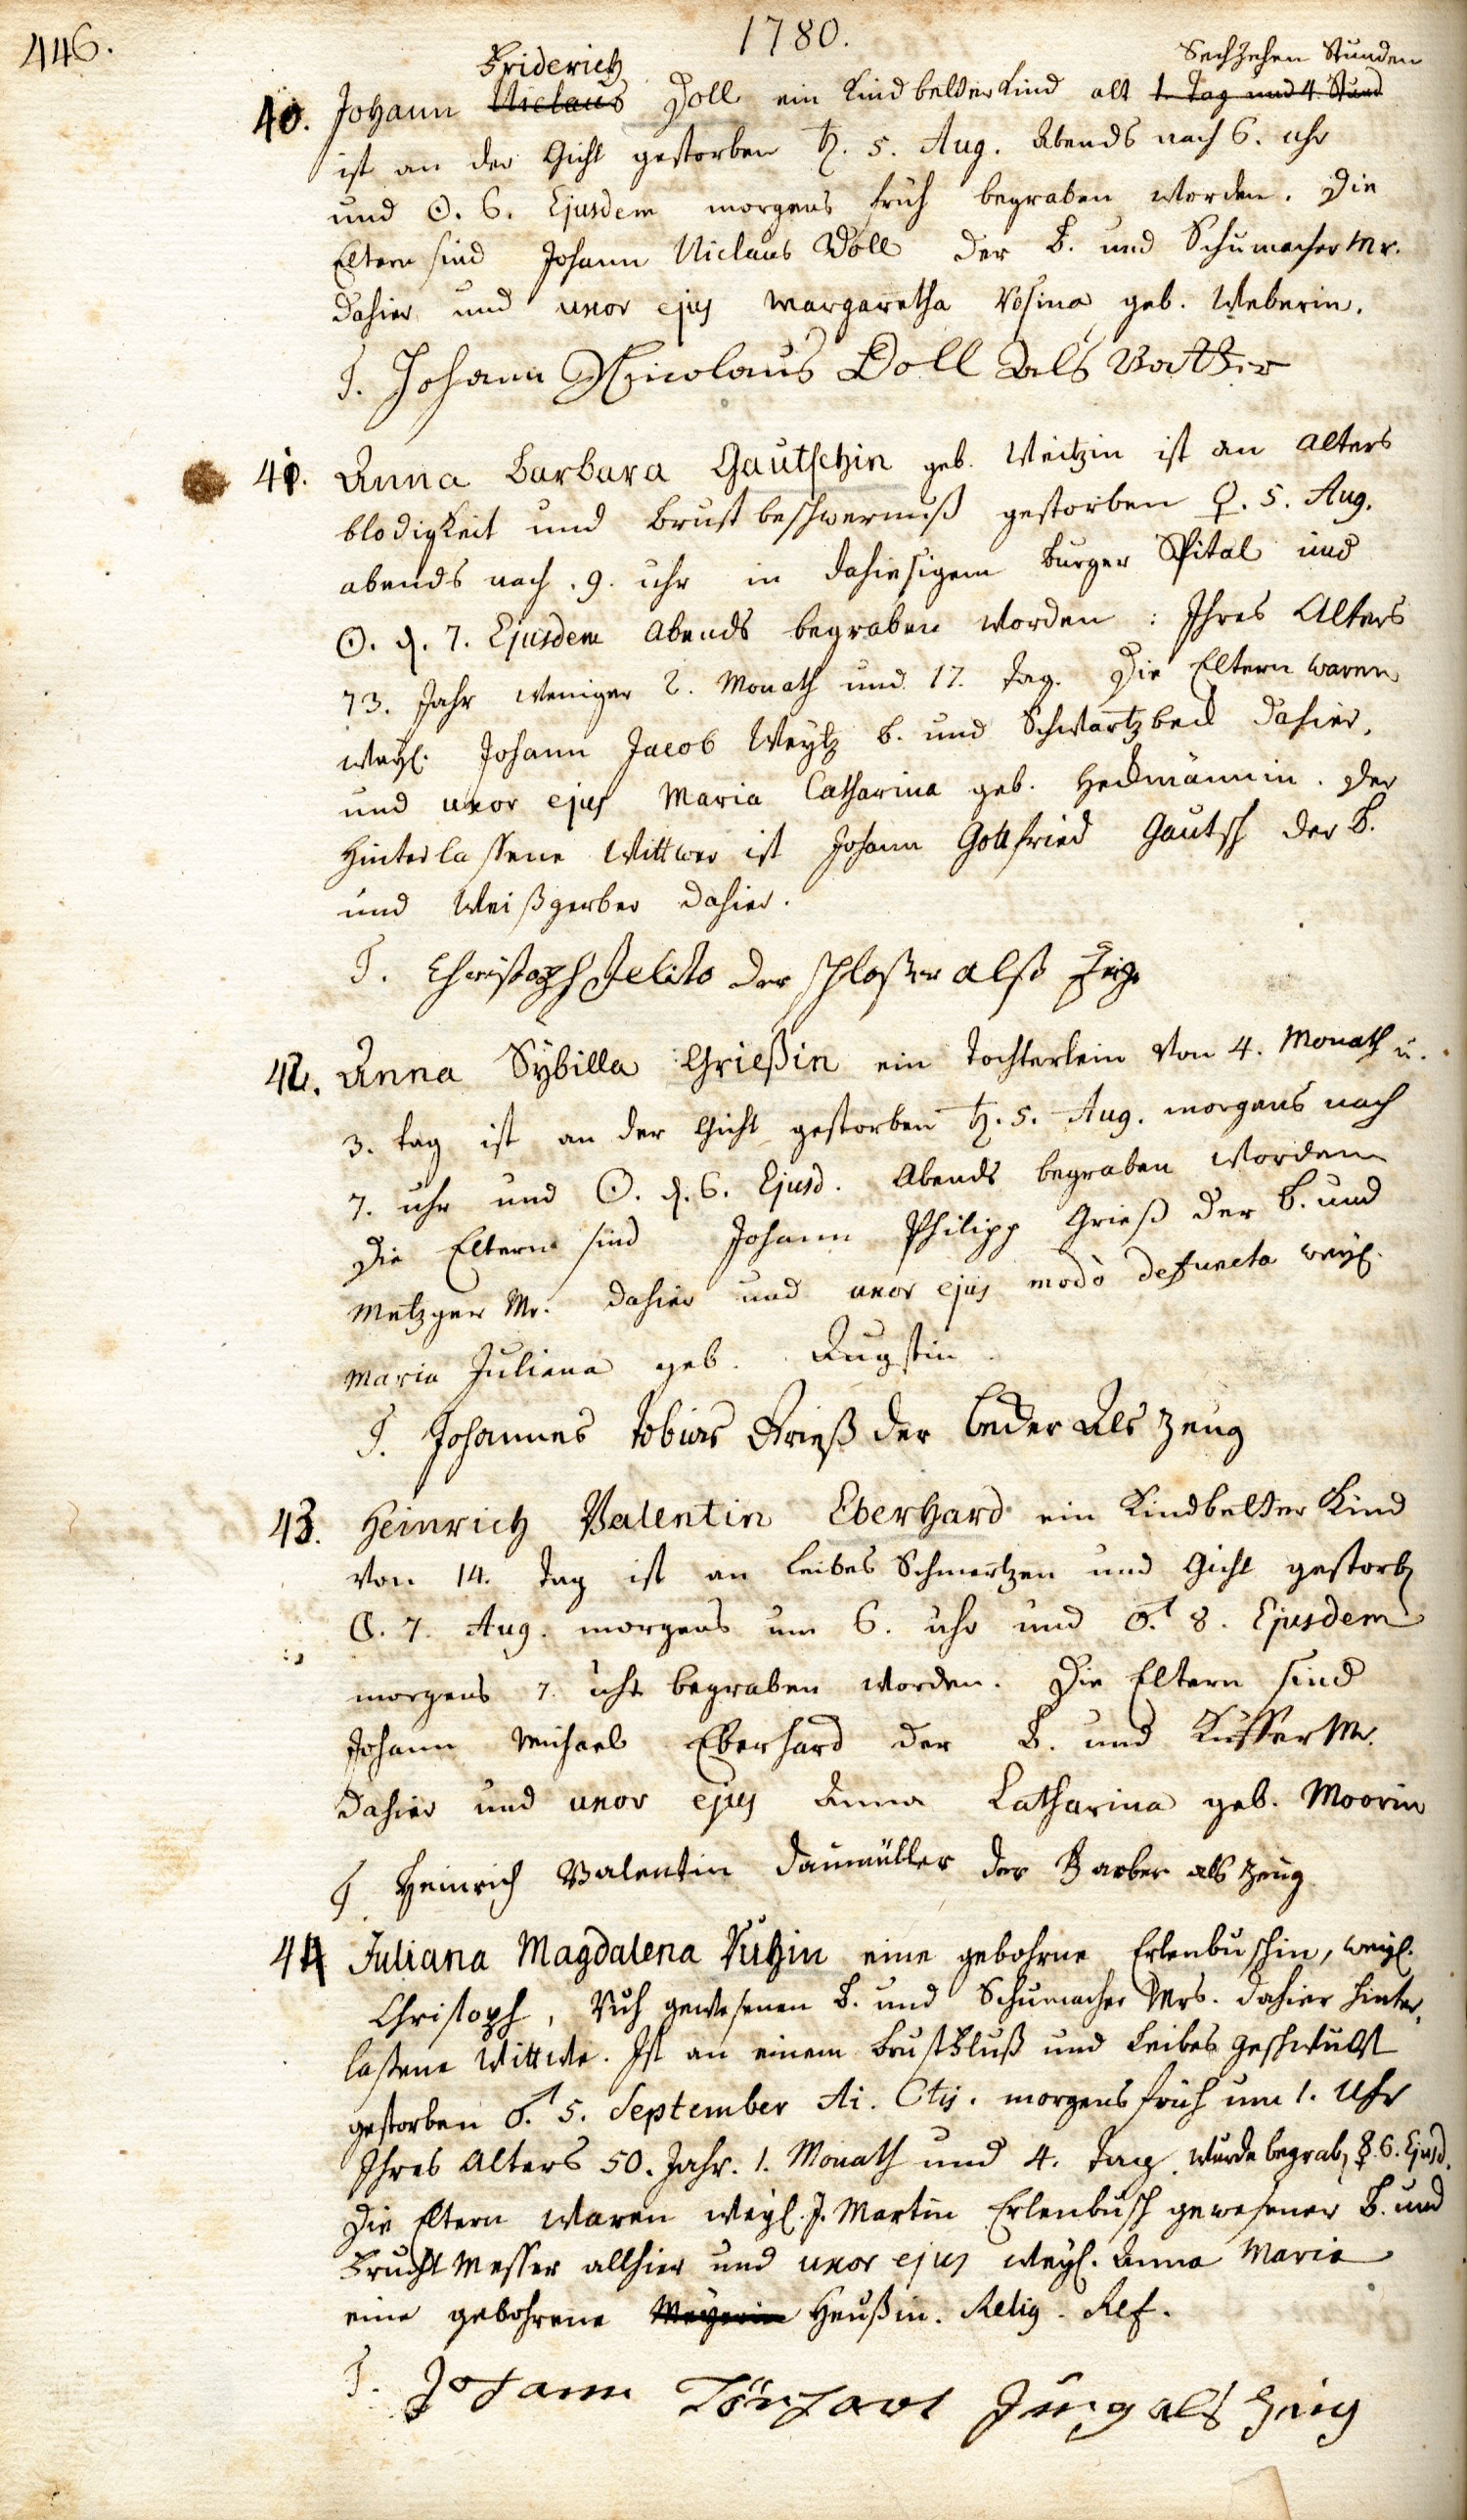 446.
1780.
Friderich
Sechzehen Stunden
40. Johann Niclaus Doll ein Kindbetter Kind alt 1. Tag und 4. Stund
ist an der Gicht gestorben ♄. 5. Aug. Abends nach 6. uhr
und ☉. 6. Ejusdem morgens früh begraben worden. Die
Eltern sind Johann Niclaus Doll der B. und Schumacher Mr.
dahier und uxor ejus Margaretha Rosina geb. Weberin.
T. Johann Nicolaus Doll Als Vatter
41. Anna Barbara Gautschin geb. Weitzin ist an Alters
blodigkeit und Brustbeschwernuß gestorben ♀. 5. Aug.
abends nach 9. uhr in dahiesigem Burger Spital und
☉. d. 7. Ejusdem Abends begraben worden: Ihres Alters
73. Jahr weniger 2. Monath und 17. Tag. Die Eltern waren
weyl. Johann Jacob Weytz B. und Schwartzbeck dahier,
und uxor ejus Maria Catharina geb. Heckmännin. Der
hinterlassene Wittwer ist Johann Gottfried Gautsch der B.
und Weißgerber dahier.
T. Christoph Jelito der schloßer alß Zeig
42. Anna Sÿbilla Grießin ein Tochterlein von 4. Monath u.
3. tag ist an der Gicht gestorben ♄. 5. Aug. morgens nach
7. uhr und ☉. d. 6. Ejusd. Abends begraben worden
Die Eltern sind Johann Philipp Grieß der B. und
Metzger Mr. dahier und uxor ejus modò defuncta weyl.
Maria Juliana geb. Augstin
T. Johannes Tobias Grieß der Als Zeug
43. Heinrich Valentin Eberhard ein Kindbetter Kind
von 14. Tag ist an Leibes Schmertzen und Gicht gestorb
☾. 7. Aug. morgens um 6. uhr und ♂. 8. Ejusdem
morgens 7. uhr begraben worden. Die Eltern sind
Johann Michael Eberhard der B. und Kuffer Mr.
dahier und uxor ejus Anna Catharina geb. Moorin
T Heinrich Valentin Daumüller der als Zeug
44 Juliana Magdalena Ruhin eine gebohrne Erlenbuschin, weyl.
Christoph, Ruh gewesenen B. und Schumacher Mrs. dahier hinter,
lassene Wittwe. Ist an einem Brustfluß und Leibes geschwulst
gestorben ♂. 5. September Ai. Ctis. morgens früh um 1. Uhr
Ihres Alters 50. Jahr. 1. Monath und 4. Tag. wurde begrab ☿. 6. Ejusd.
Die Eltern waren weyl. J. Martin Erlenbusch gewesener B. und
Frucht Messer allhier und uxor ejus weyl. Anna Maria
eine gebohrene Meyerin Heußin. Relig. Ref.
T. Johann Jung als Zeug